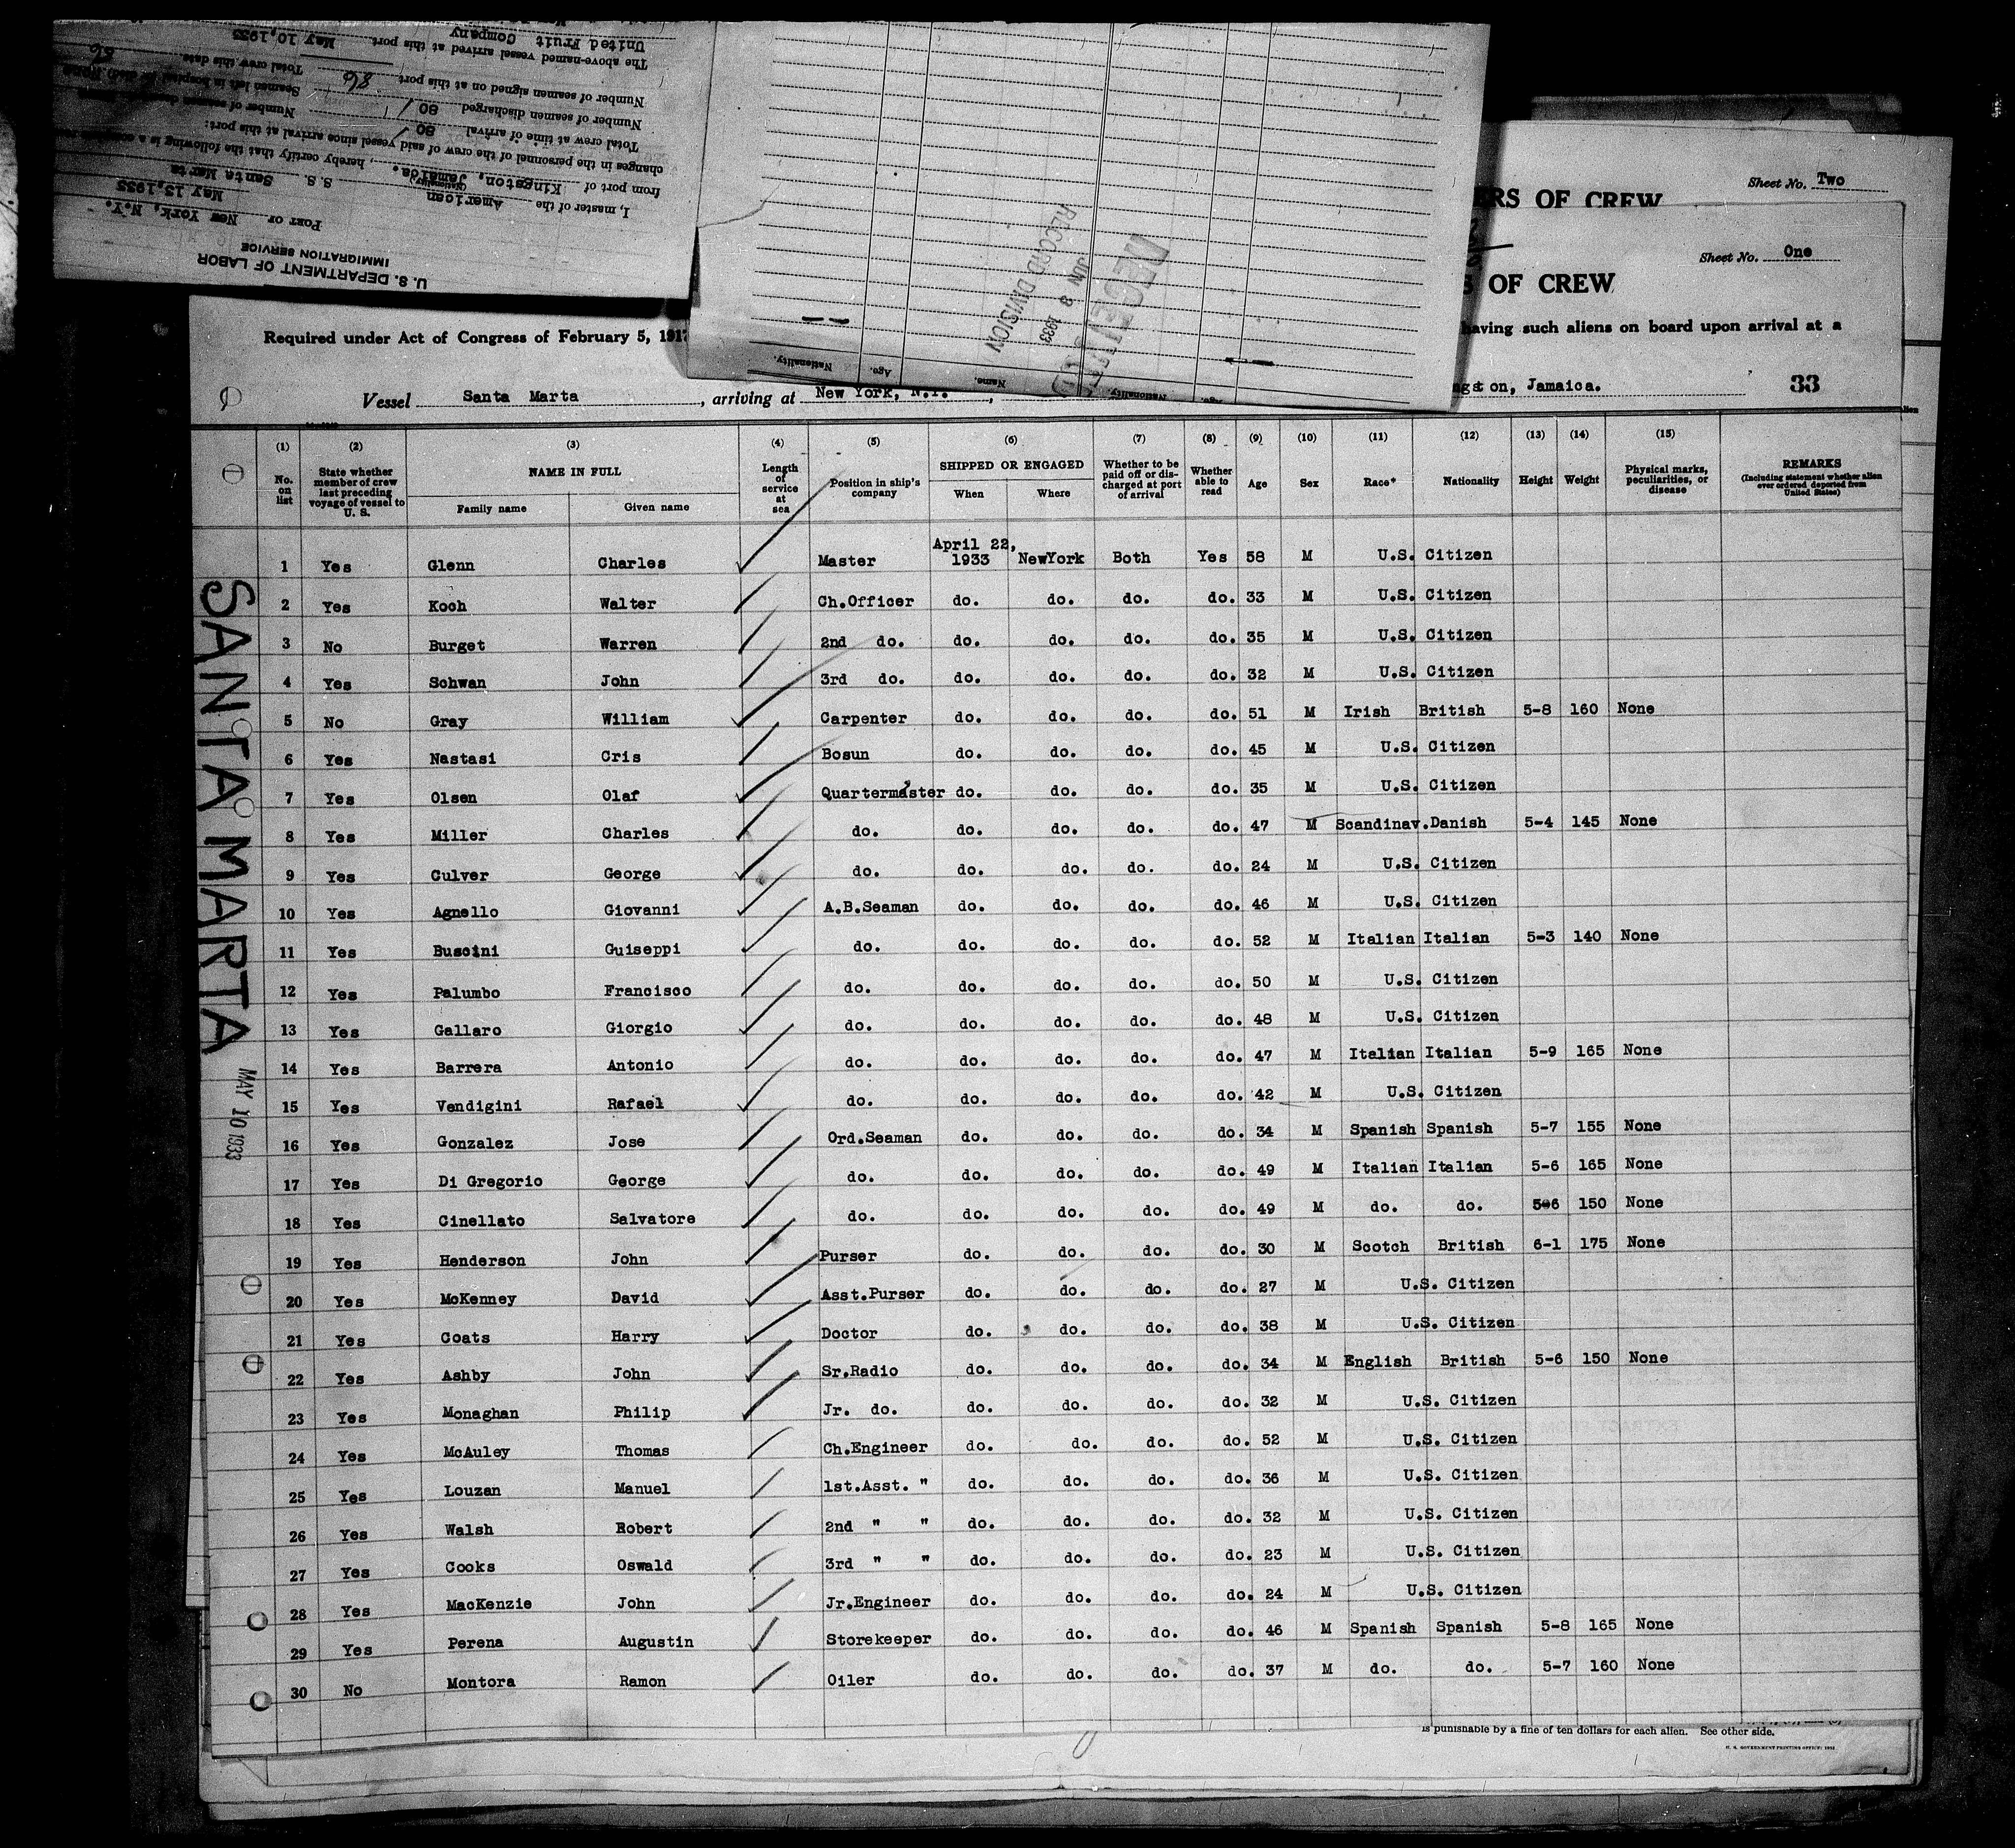 U. S. DEPARTMENT OF LABOR
IMMIGRATION SERVICE
PORT OF New York, N.Y.
May 13, 1933
I, master of the American S. S. Santa Marta
(Nationality)
from port of Kingston, Jamaica., hereby certify that the following is a complete
changes in the personnel of the crew of said vessel since arrival at this port:
Total crew at time of arrival 80
Number of seamen discharged 80
Number of seamen signed on at this port 86
Total crew this date 86
The above-named vessel arrived at this port May 10, 1933
United Fruit Company
RECEIVED
JUN 8 1933
RECORD DIVISION
Nationality. Age. Name. Nationality. Age.
Sheet No. Two
ERS OF CREW
Sheet No. One
S OF CREW
Required under Act of Congress of February 5, 1917
having such aliens on board upon arrival at a
Vessel Santa Marta, arriving at New York, N.Y.,
ngston, Jamaica. 33
(1) (2) (3) (4) (5) (6) (7) (8) (9) (10) (11) (12) (13) (14) (15)
No. on list
State whether member of crew last preceding voyage of vessel to U. S.
NAME IN FULL
Family name Given name
Length of service at sea
Position in ship's company
SHIPPED OR ENGAGED
When Where
Whether to be paid off or discharged at port of arrival
Whether able to read
Age Sex Race* Nationality Height Weight
Physical marks, peculiarities, or disease
REMARKS
(Including statement whether alien ever ordered deported from United States)
1 Yes Glenn Charles Master April 22, 1933 NewYork Both Yes 58 M U.S. Citizen
2 Yes Koch Walter Ch.Officer do. do. do. do. 33 M U.S. Citizen
3 No Burget Warren 2nd do. do. do. do. do. 35 M U.S. Citizen
4 Yes Schwan John 3rd do. do. do. do. do. 32 M U.S. Citizen
5 No Gray William Carpenter do. do. do. do. 51 M Irish British 5-8 160 None
6 Yes Nastasi Cris Bosun do. do. do. do. 45 M U.S. Citizen
7 Yes Olsen Olaf Quartermaster do. do. do. do. 35 M U.S. Citizen
8 Yes Miller Charles do. do. do. do. do. 47 M Scandinav. Danish 5-4 145 None
9 Yes Culver George do. do. do. do. do. 24 M U.S. Citizen
10 Yes Agnello Giovanni A.B.Seaman do. do. do. do. 46 M U.S. Citizen
11 Yes Buscini Guiseppi do. do. do. do. do. 52 M Italian Italian 5-3 140 None
12 Yes Palumbo Francisco do. do. do. do. do. 50 M U.S. Citizen
13 Yes Gallaro Giorgio do. do. do. do. do. 48 M U.S. Citizen
14 Yes Barrera Antonio do. do. do. do. do. 47 M Italian Italian 5-9 165 None
15 Yes Vendigini Rafael do. do. do. do. do. 42 M U.S. Citizen
16 Yes Gonzalez Jose Ord.Seaman do. do. do. do. 34 M Spanish Spanish 5-7 155 None
17 Yes Di Gregorio George do. do. do. do. do. 49 M Italian Italian 5-6 165 None
18 Yes Cinellato Salvatore do. do. do. do. do. 49 M do. do. 5-6 150 None
19 Yes Henderson John Purser do. do. do. do. 30 M Scotch British 6-1 175 None
20 Yes McKenney David Asst.Purser do. do. do. do. 27 M U.S. Citizen
21 Yes Coats Harry Doctor do. do. do. do. 38 M U.S. Citizen
22 Yes Ashby John Sr.Radio do. do. do. do. 34 M English British 5-6 150 None
23 Yes Monaghan Philip Jr. do. do. do. do. do. 32 M U.S. Citizen
24 Yes McAuley Thomas Ch.Engineer do. do. do. do. 52 M U.S. Citizen
25 Yes Louzan Manuel 1st.Asst. " do. do. do. do. 36 M U.S. Citizen
26 Yes Walsh Robert 2nd " " do. do. do. do. 32 M U.S. Citizen
27 Yes Cooks Oswald 3rd " " do. do. do. do. 23 M U.S. Citizen
28 Yes MacKenzie John Jr.Engineer do. do. do. do. 24 M U.S. Citizen
29 Yes Perena Augustin Storekeeper do. do. do. do. 46 M Spanish Spanish 5-8 165 None
30 No Montora Ramon Oiler do. do. do. do. 37 M do. do. 5-7 160 None
SANTA MARTA
MAY 10 1933
is punishable by a fine of ten dollars for each alien. See other side.
U. S. GOVERNMENT PRINTING OFFICE: 1931